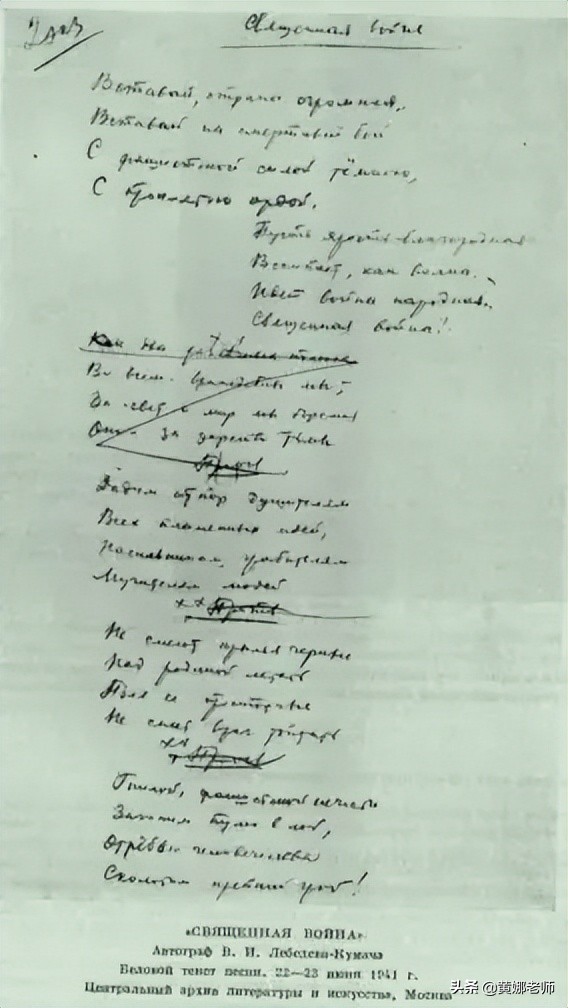 Священная война
Вставай, страна огромная,
Вставай на смертный бой
С фашистской силой тёмною,
С проклятою ордой.
Пусть ярость благородная
Вскипает, как волна.
Идёт война народная,
Священная война!
Как два различных полюса
Во всём враждебны мы;
За свет и мир мы боремся
Они за царство тьмы
Припев
Дадим отпор душителям
Всех пламенных идей,
Насильникам, грабителям
Мучителям людей
Припев
Не смеют крылья чёрные
Над родиной летать
Поля её просторные
Не смеет враг топтать
Припев
Гнилой фашистской нечисти
Загоним пулю в лоб,
Отребью человечества
Сколотим крепкий гроб!
«СВЯЩЕННАЯ ВОЙНА»
Автограф В. И. Лебедева-Кумача
Беловой текст песни. 22—23 июня 1941 г.
Центральный архив литературы и искусства, Москва
头条 @黄娜老师